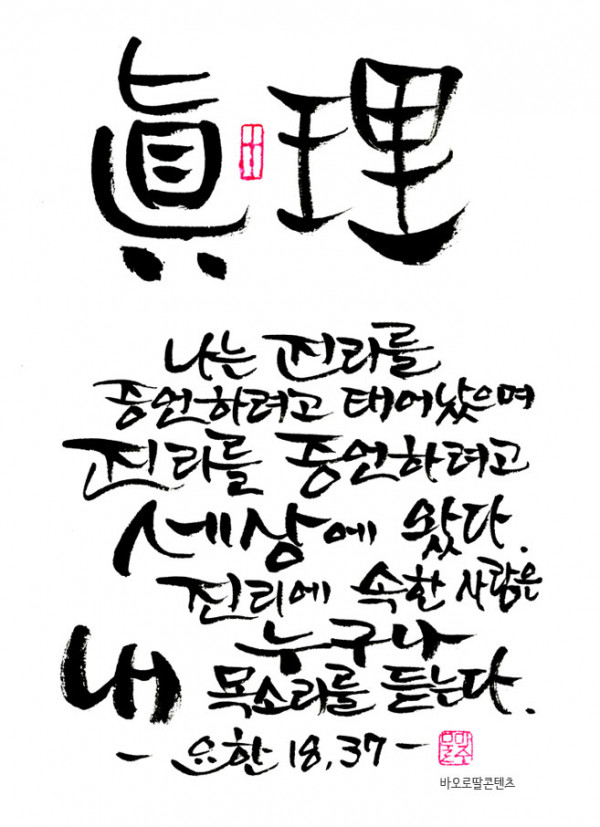 眞理
나는 진리를
증언하려고 태어났으며
진리를 증언하려고
세상에 왔다.
진리에 속한 사람은
누구나
내 목소리를 듣는다.
- 요한 18,37 -
바오로딸콘텐츠